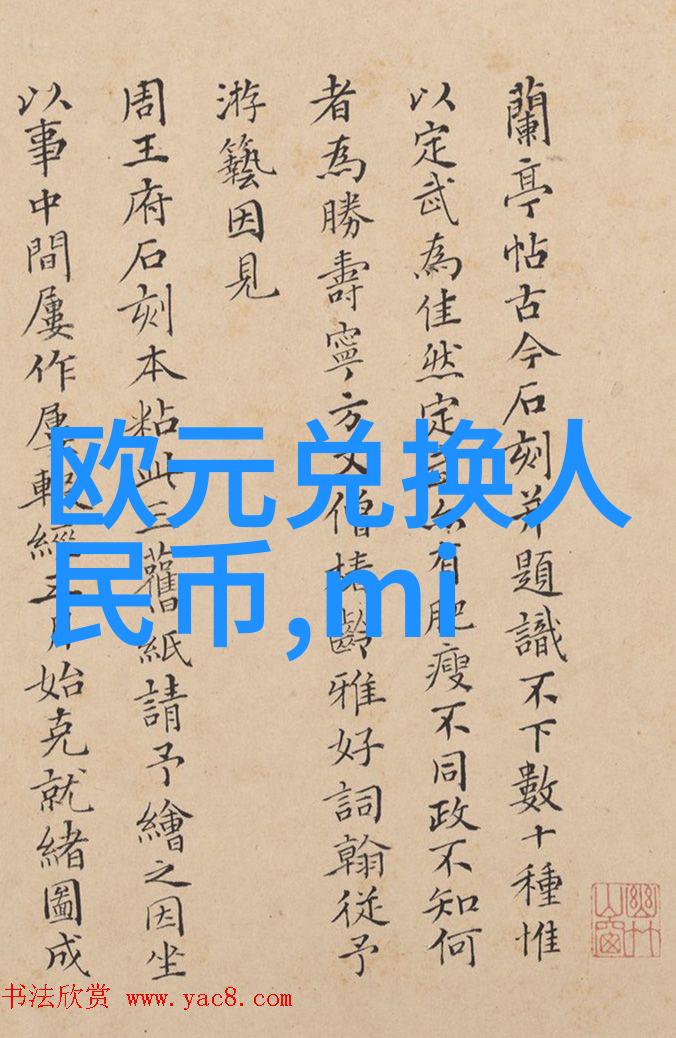 蘭亭帖古今石刻并題識不下數十種惟
以定武為佳然定武亦有肥瘦不同政不知何
者為勝壽寧方丈僧椿齡雅好詞翰從予
游藝因見
周王府石刻本粘此三舊紙請予繪之因坐
以事中間屢作屢輟經三月始克就緒圖成
欧元兑换人
民币,mi
幽竹山窗
书法欣赏 www.yac8.com